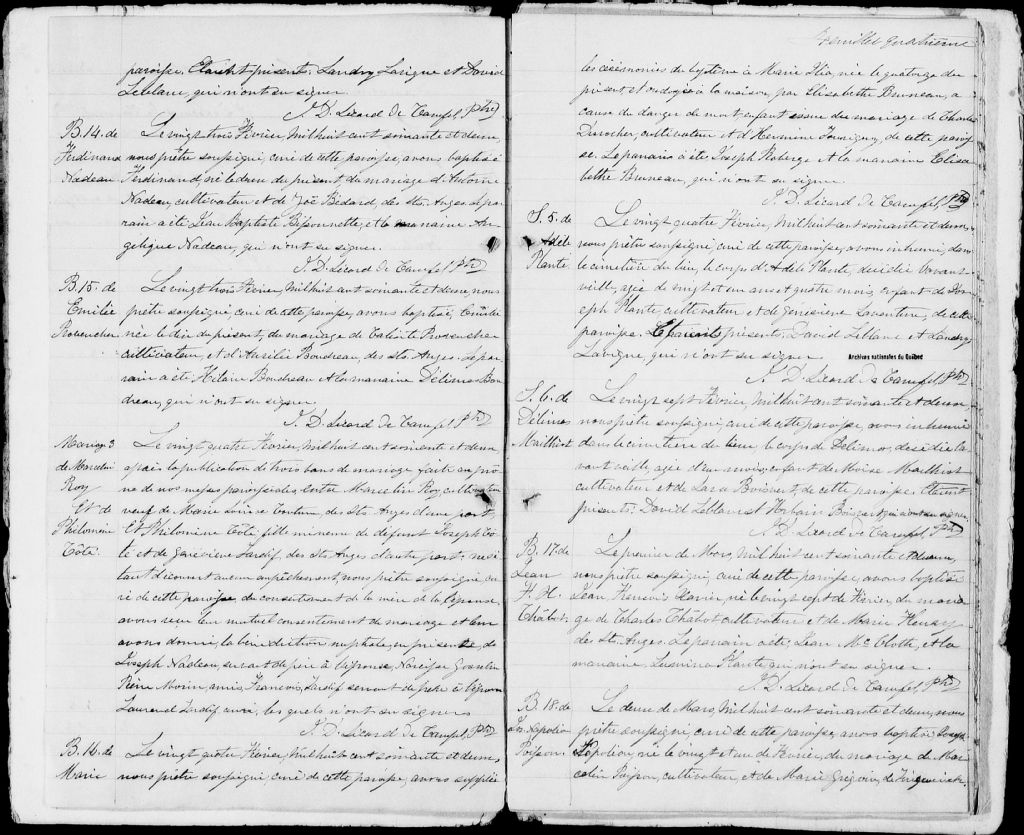 paroisse. Etaient présents Landry Lavigne et David
Leblanc, qui n'ont su signer.
J. D. Sicard De Carufel, Ptre
B. 14. de
Ferdinand
Nadeau
Le vingt trois Février, mil huit cent soixante et deux,
nous prêtre soussigné, curé de cette paroisse, avons baptisé
Ferdinand, né le du présent du mariage d'Antoine
Nadeau, cultivateur et de Zoé Bédard, des Sts. Anges. Le par
rain a été Jean Baptiste Bissonnette, et la marraine An
gelique Nadeau, qui n'ont su signer.
J. D. Sicard de Carufel Ptre
B. 15. de
Emilie
Provencher
Le vingt trois Février, mil huit cent soixante et deux, nous
prêtre soussigné, curé de cette paroisse, avons baptisé, Emilie
née le du présent, du mariage de Calixte Provencher
cultivateur, et d'Aurilie Boudreau, des Sts. Anges. Le par
rain a été Hilaire Boudreau et la marraine Délima Bou
dreau, qui n'ont su signer.
J. D. Sicard de Carufel Ptre
Mariage 3
de Marcelin
Roy
Et de
Philomène
Côté
Le vingt quatre Février, mil huit cent soixante et deux
après la publication de trois bans de mariage faite au prô
ne de nos messes paroissiales, entre Marcelin Roy, cultivateur
veuf de Marie Louise Couture, des Sts. Anges d'une part
Et Philomène Côté, fille mineure de défunt Joseph Cô
té et de Geneviève Tardif, des Sts. Anges d'autre part: ne s'é
tant découvert aucun empêchement, nous prêtre soussigné, cu
ré de cette paroisse du consentement de la mère de l'épouse,
avons reçu leur mutuel consentement de mariage et leur
avons donné la bénédiction nuptiale, en présence, de
Joseph Nadeau, servant de père à l'épouse, Narcisse Gosselin
Pierre Morin, amis, François Tardif servant de père à l'époux
Laurent Tardif, ami, les quels n'ont su signer
J. D. Sicard de Carufel, Ptre
B. 16. de
Marie
Le vingt quatre Février, mil huit cent soixante et deux,
nous prêtre soussigné, curé de cette paroisse, avons suppléé
Feuillet quatrième
les cérémonies du baptême à Marie née le quatorze du
présent et ondoyée à la maison, par Elisabeth Bruneau, a
cause du danger de mort, enfant issue du mariage de Charles
Durocher, cultivateur et d'Hermine de cette parois
se. Le parrain a été Joseph Roberge et la marraine Elisa
bethe Bruneau, qui n'ont su signer.
J. D. Sicard de Carufel, Ptre
S. 5. de
Adèle
Plante
Le vingt quatre Février, mil huit cent soixante et deux,
nous prêtre soussigné, curé de cette paroisse, avons inhumé, dans
le cimetière du lieu, le corps d'Adèle Plante, décédée l'avant
veille, agée de vingt et un ans et quatre mois, enfant de Jos
eph Plante, cultivateur et de Geneviève Laventure, de cette
paroisse. Etaient présents, David Leblanc et Landry
Lavigne, qui n'ont su signer
Archives nationales du Québec
J. D. Sicard de Carufel, Ptre
S. 6. de
Délima
Mailhiot
Le vingt sept Février, mil huit cent soixante et deux,
nous prêtre soussigné, curé de cette paroisse, avons inhumé
dans le cimetière du lieu, le corps de Délima, décédée l'a
vant veille, agée d'un mois, enfant de Moïse Mailhiot
cultivateur et de Lara Boisvert, de cette paroisse. Etaient
présents: David Leblanc et Urbain Boisvert qui n'ont su signer.
J. D. Sicard de Carufel, Ptre
B. 17. de
Jean
F. X.
Chabot
Le premier de Mars, mil huit cent soixante et deux
nous prêtre soussigné, curé de cette paroisse, avons baptisé
Jean François Xavier, né le vingt sept de Février, du maria
ge de Charles Chabot cultivateur et de Marie Fleury
des Sts. Anges. Le parrain a été, Jean Mc et la
marraine, Plante, qui n'ont su signer.
J. D. Sicard De Carufel, Ptre
B. 18. de
Jos. Napoléon
Poisson
Le deux de Mars, mil huit cent soixante et deux, nous
prêtre soussigné, curé de cette paroisse, avons baptisé Joseph
Napoléon, né le vingt et un de Février, du mariage de Mar
celin Poisson, cultivateur, et de Marie Grégoire, de